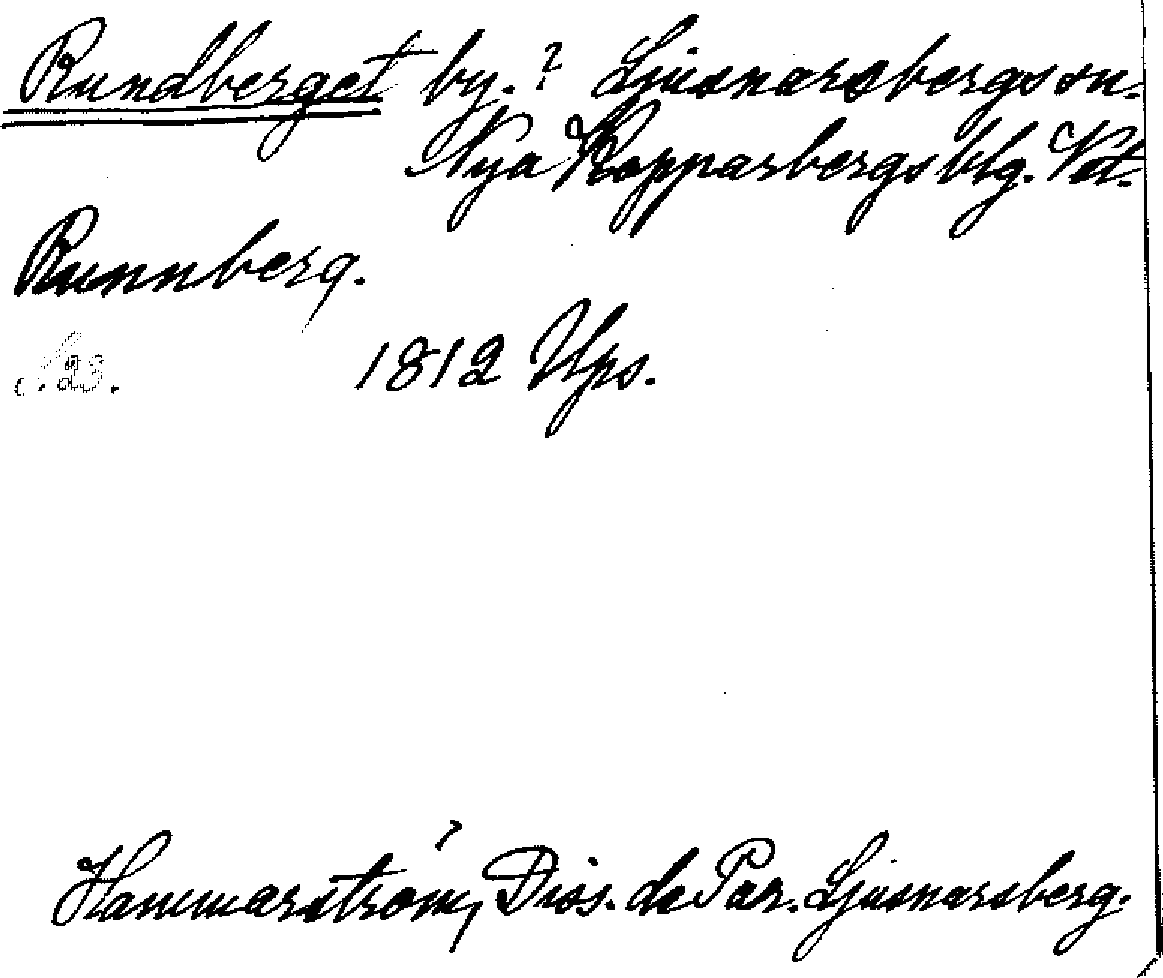 Rundberget by.? Ljusnarsbergs sn.
Nya Kopparbergs blg. Vst.
Runnberg.
1812 Ups.
Hammarström, Diss. de Par. Ljusnarsberg.